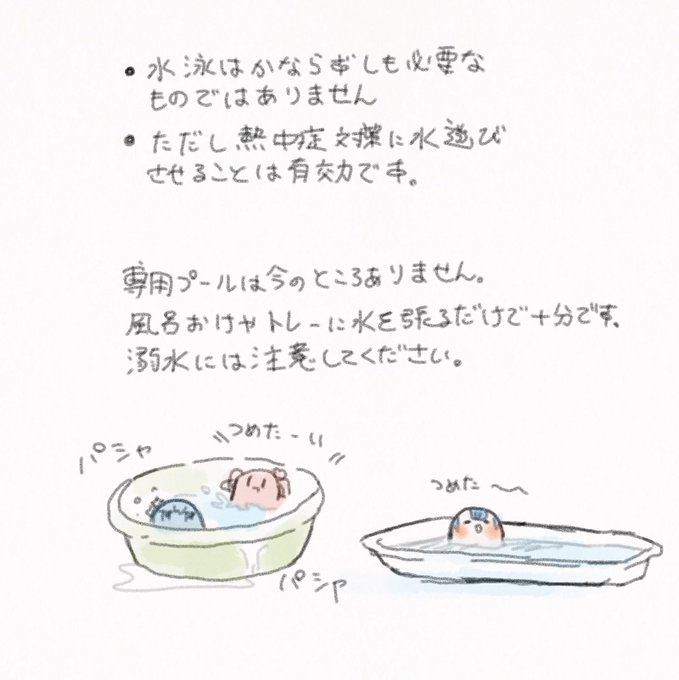 • 水泳はかならずしも必要な
ものではありません
• ただし熱中症対策に水遊び
させることは有効です。
専用プールは今のところありません。
風呂おけやトレーに水を張るだけで十分です、
溺水には注意してください。
パシャ
つめたーい
つめた〜
パシャ